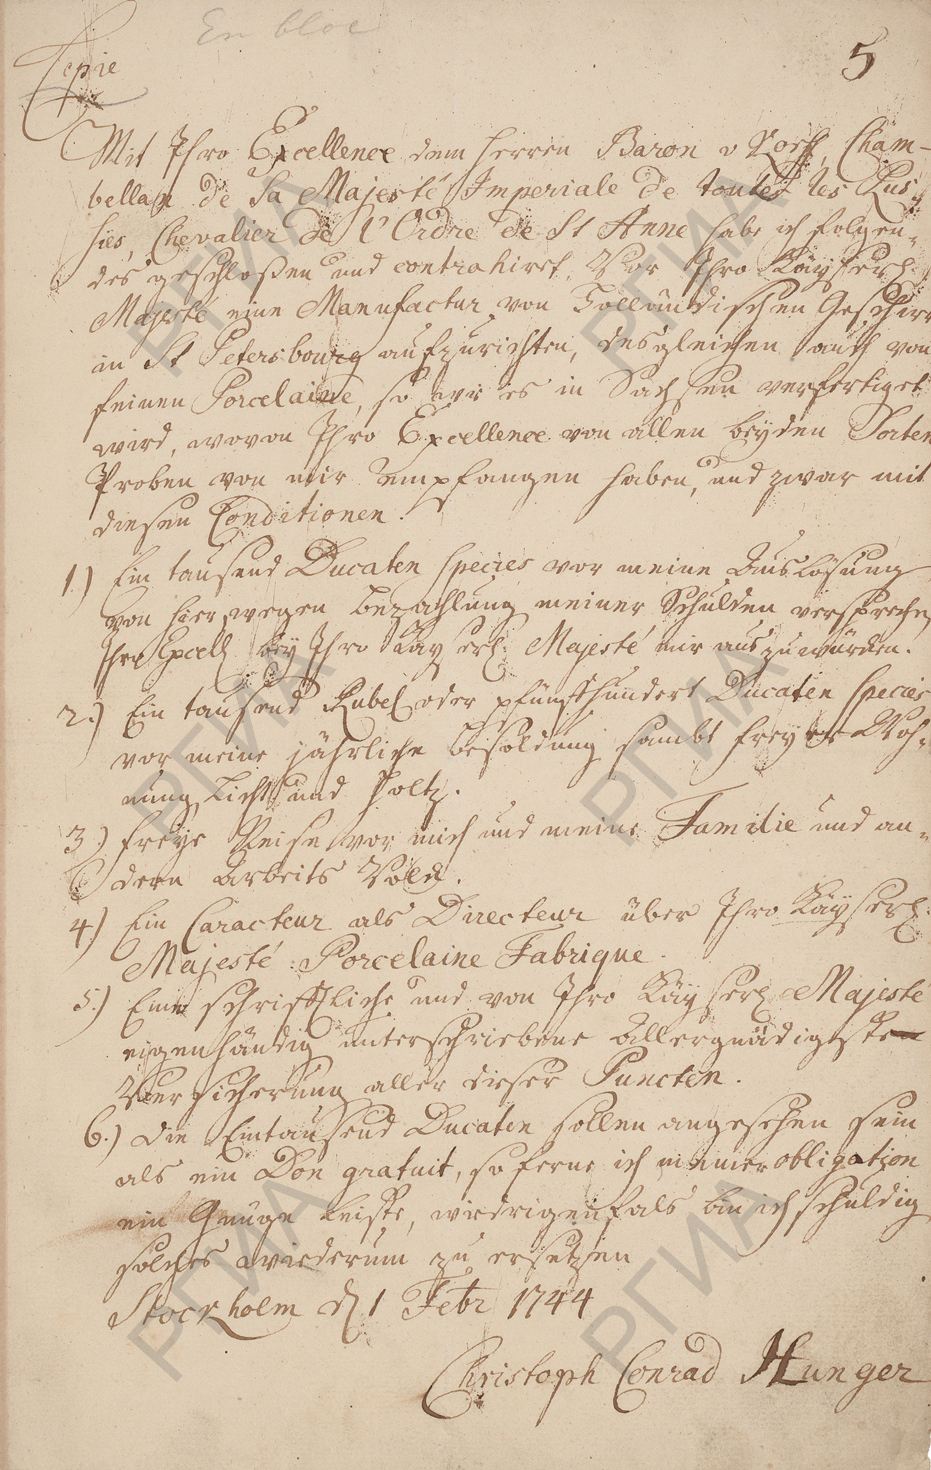 En bloc
5
Copie
Mit Ihro Excellence dem Herren Baron v Korff, Cham-
bellan de Sa Majesté Imperiale de toutes les Rus-
sies, Chevalier de l'Ordre de St Anne habe ich folgen-
des geschloßen und contrahiret, Vor Ihro Käyserl:
Majesté eine Manufactur von Holländischen Geschirr
in St Petersbourg aufzurichten, desgleichen auch von
feinen Porcelaine, so wie es in Sachsen verfertiget
wird, wovon Ihro Excellence von allen beyden Sorten
Proben von mir empfangen haben, und zwar mit
diesen Conditionen.
1.) Ein tausend Ducaten Species vor meine Auslösung
von hier wegen bezahlung meiner Schulden versprechen
Ihro Excell: bey Ihro Kayserl: Majesté mir auszuwürken.
2.) Ein tausend Rubel oder pfünffhundert Ducaten Species
vor meine jährliche besoldung sambt freyer Woh-
nung Licht und Holtz.
3.) freye Reise vor mich und meine Familie und an-
dern Arbeits Volck.
4.) Ein Caracteur als Directeur über Ihro Käyserl:
Majesté Porcelaine Fabrique.
5.) Eine schrifftliche und von Ihro Käyserl: Majesté
eigenhändig unterschriebene Allergnädigste
Versicherung aller dieser Puncten.
6.) Die Eintausend Ducaten sollen angesehen sein
als ein Don gratuit, so ferne ich meiner obligation
ein Genüge leiste, wiedrigenfals bin ich schuldig
solches wiederum zu ersetzen
Stockholm d 1 Febr 1744
Christoph Conrad Hunger
РГИА
РГИА
РГИА
РГИА
РГИА
РГИА